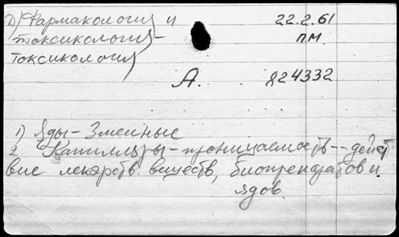 Д) Фармакология и
22.2.61
токсикология-
п.м.
токсикология
А.
824332
1) Яды-Змеиные
2 Капилляры-проницаемость--дейст
вие лекарств. веществ, биопрепаратов и
ядов.